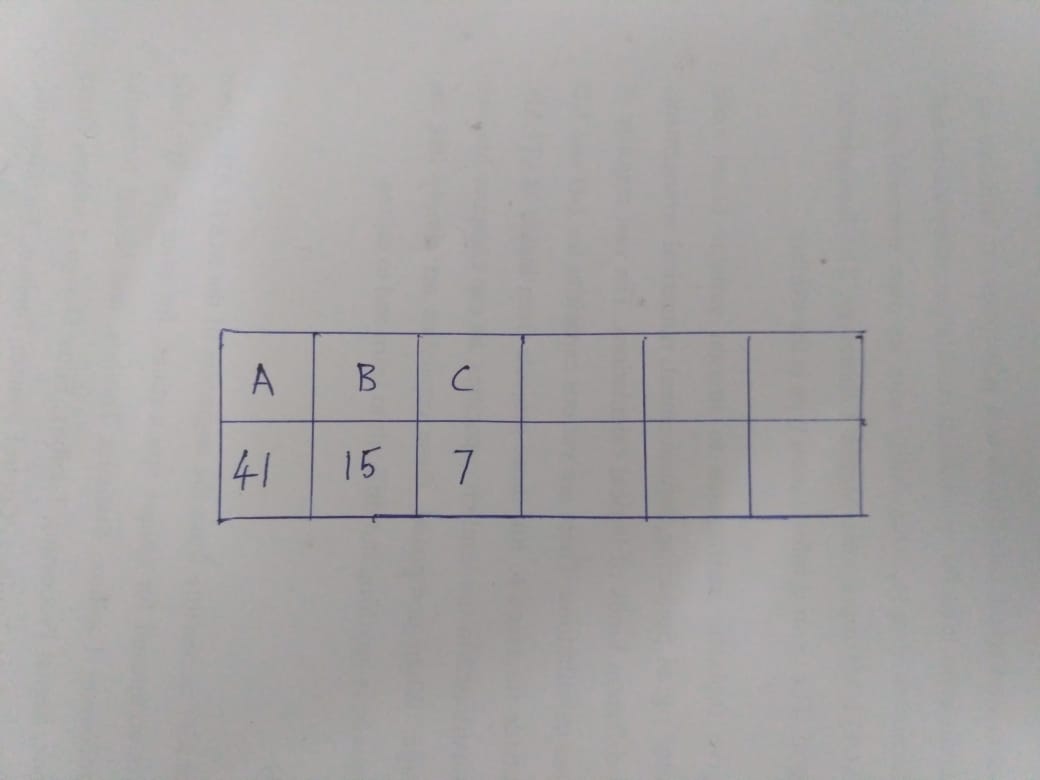 A B C
41 15 7